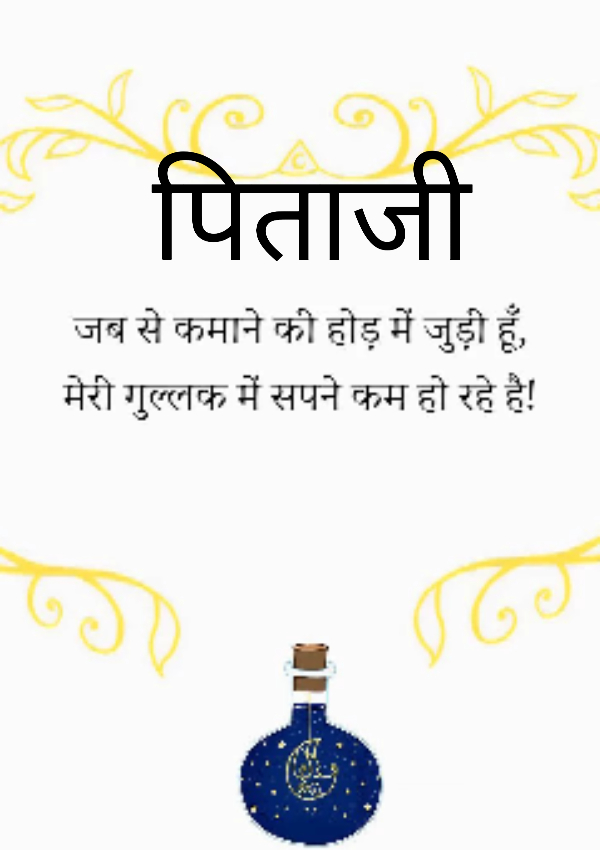 पिताजी
जब से कमाने की होड़ में जुड़ी हूँ,
मेरी गुल्लक में सपने कम हो रहे है!